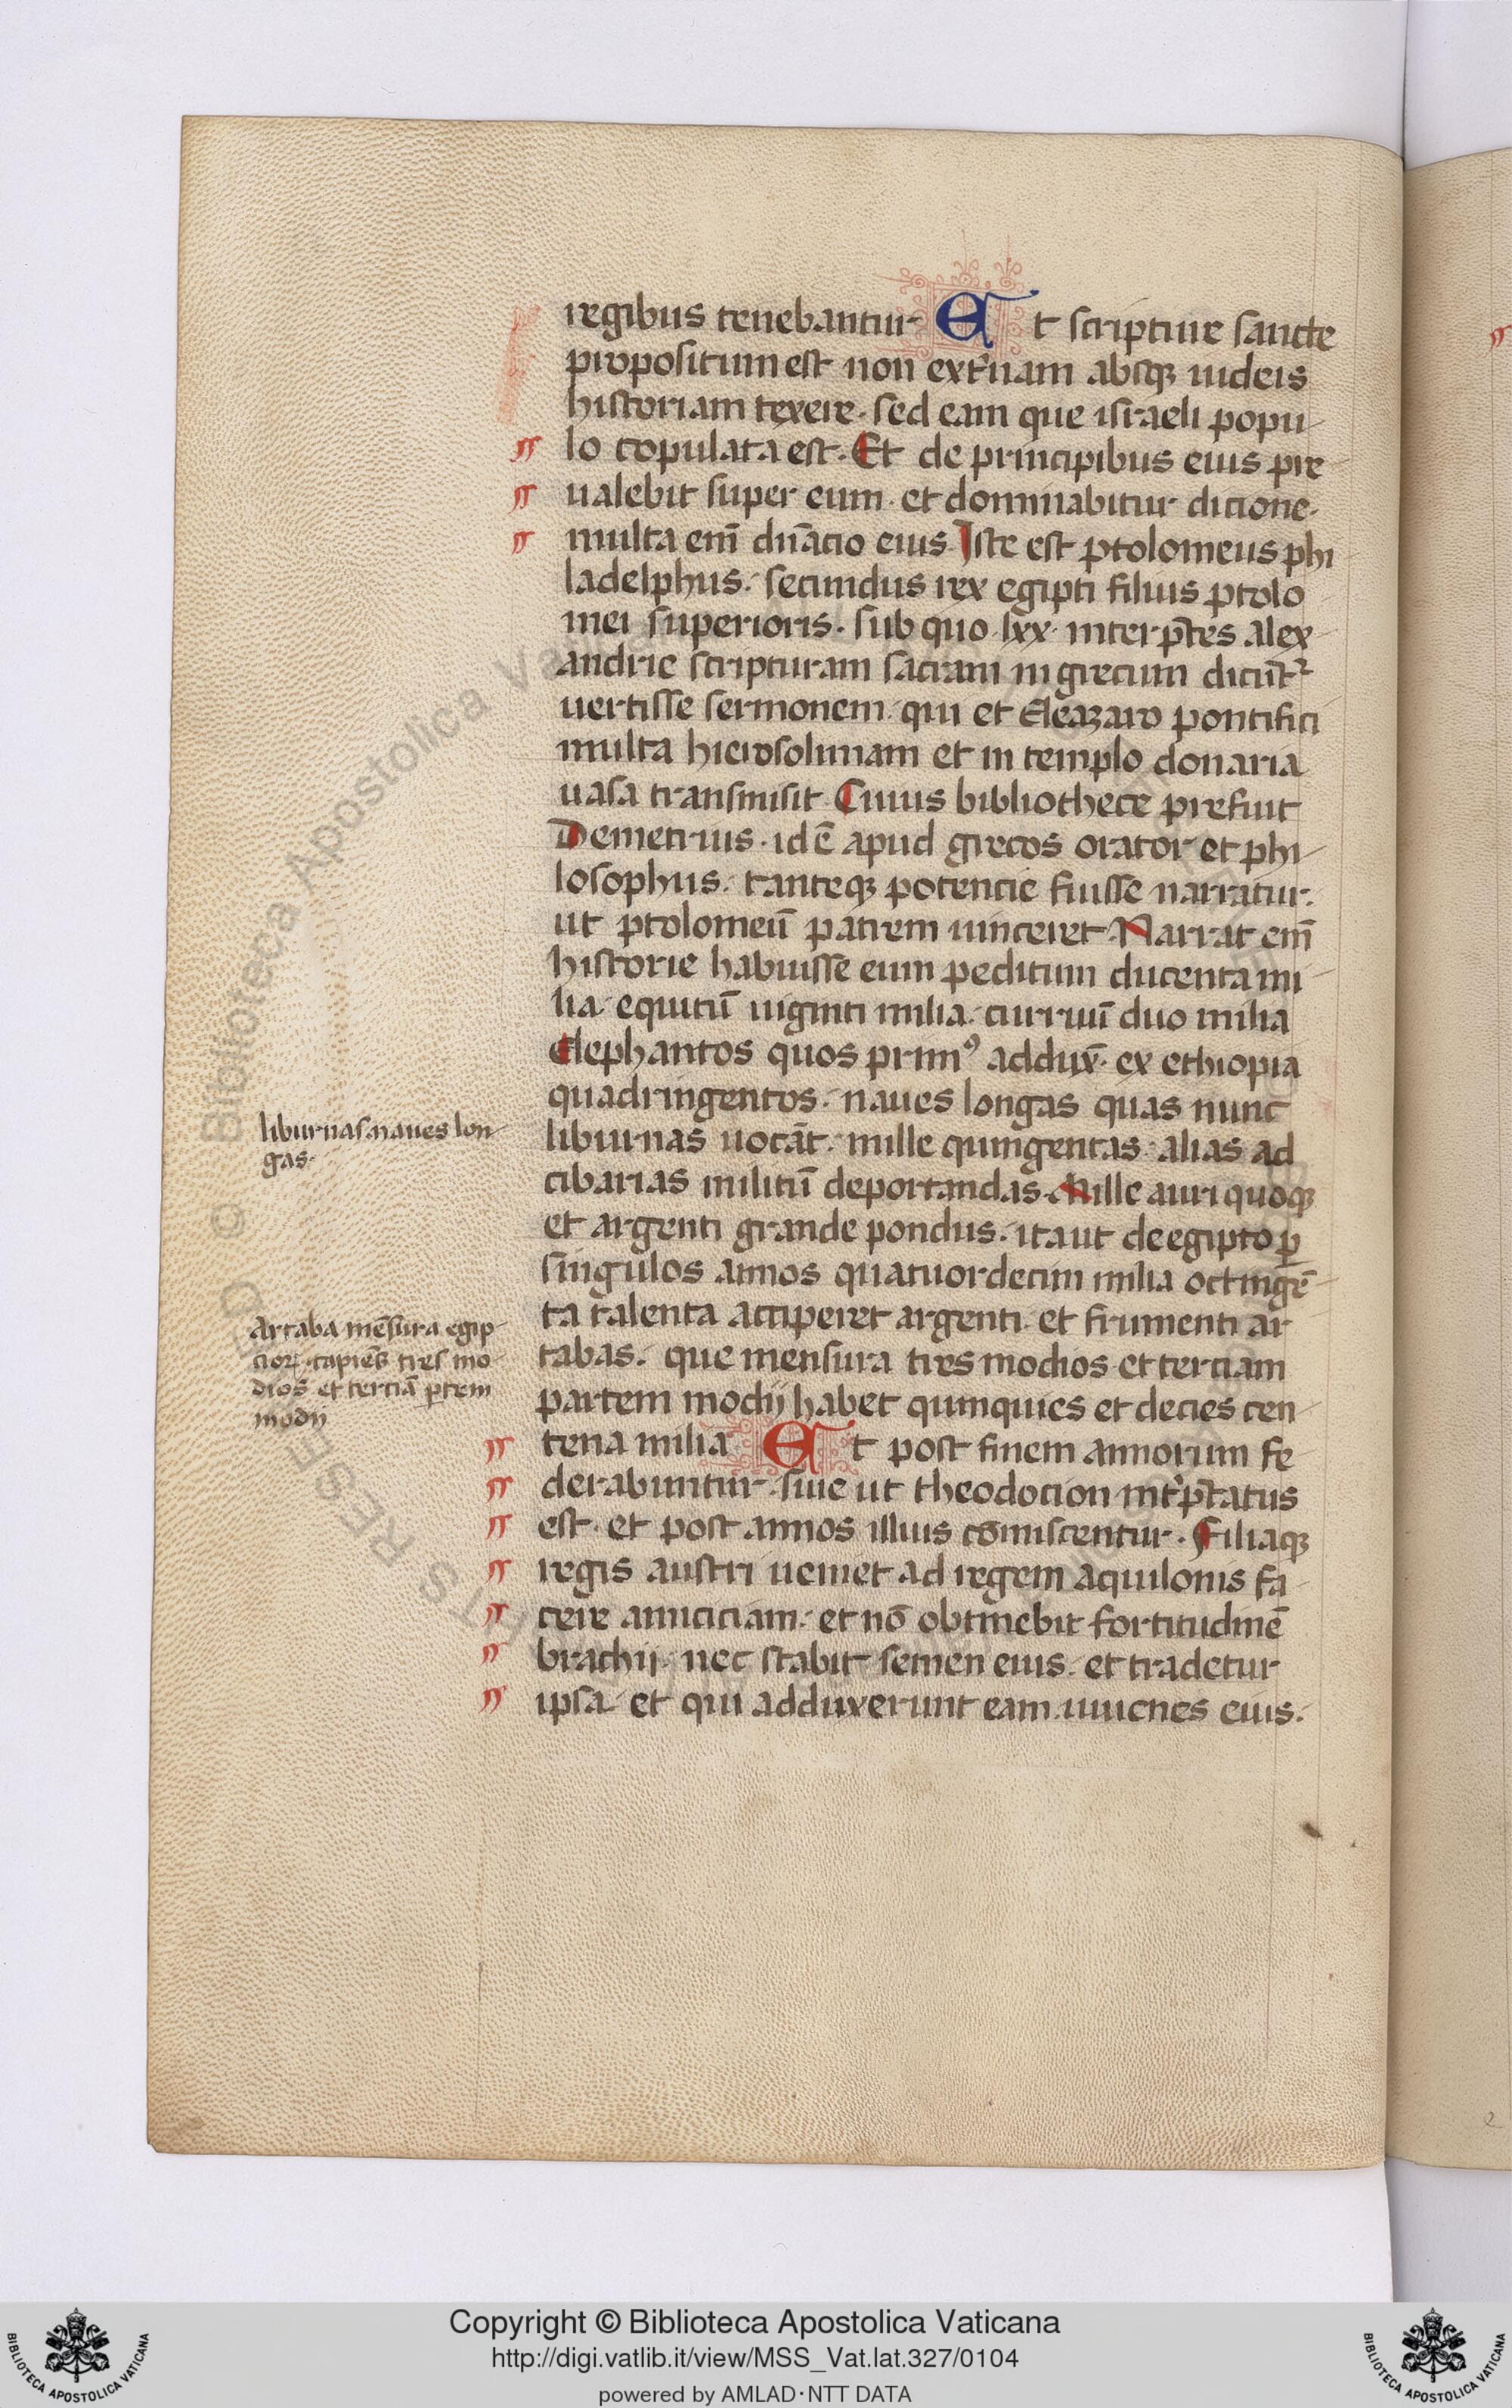 regibus tenebantur Et scripture sancte
propositum est non ext̄nam absqꝫ iudeis
historiam texere. sed eam que israeli popu-
lo copulata est. Et de principibus eius pre-
ualebit super eum. et dominabitur dicione.
multa em̄ dn̄acio eius. Iste est ptolomeus phi
ladelphus. secundus rex egipti filius ptolo
mei superioris. sub quo lxx. interp̄tes alex-
andrie scripturam sacram in grecum dicūt᷑
uertisse sermonem. qui et Eleazaro pontifici
multa hierosolimam et in templo donaria
uasa transmisit. Cuius bibliothece prefuit
Demetrius. idē apud grecos orator et phi-
losophus. tanteqꝫ potencie fuisse narratur.
ut ptolomeū patrem uinceret. Narrāt em̄
historie habuisse eum peditum ducenta mi-
lia. equitū uiginti milia. curruū duo milia
Elephantos quos primꝰ addux̄. ex ethiopia
quadringentos. naues longas quas nunc
liburnas uocāt. mille quingentas. alias ad
cibarias militū deportandas. Mille auri quoqꝫ
et argenti grande pondus. ita ut de egipto ꝑ
singulos annos quatuordecim milia octingē-
ta talenta acciperet argenti. et frumenti ar-
tabas. que mensura tres modios et terciam
partem modij habet quinquies et decies cen-
tena milia Et post finem annorum fe-
derabuntur. siue ut theodocion int̄p̄tatus
est. et post annos illius cōmiscentur. Filiaqꝫ
regis austri ueniet ad regem aquilonis fa-
cere amiciciam. et nō obtinebit fortitudinē
brachij. nec stabit semen eius. et tradetur
ipsa. et qui adduxerunt eam. iuuenes eius.
liburnas. naues lon-
gas.
Artaba mēsura egip-
cioꝝ. capiēs tres mo-
dios et terciā ꝑtem
modij
Copyright © Biblioteca Apostolica Vaticana
http://digi.vatlib.it/view/MSS_Vat.lat.327/0104
powered by AMLAD·NTT DATA
BIBLIOTECA APOSTOLICA VATICANA
BIBLIOTECA APOSTOLICA VATICANA